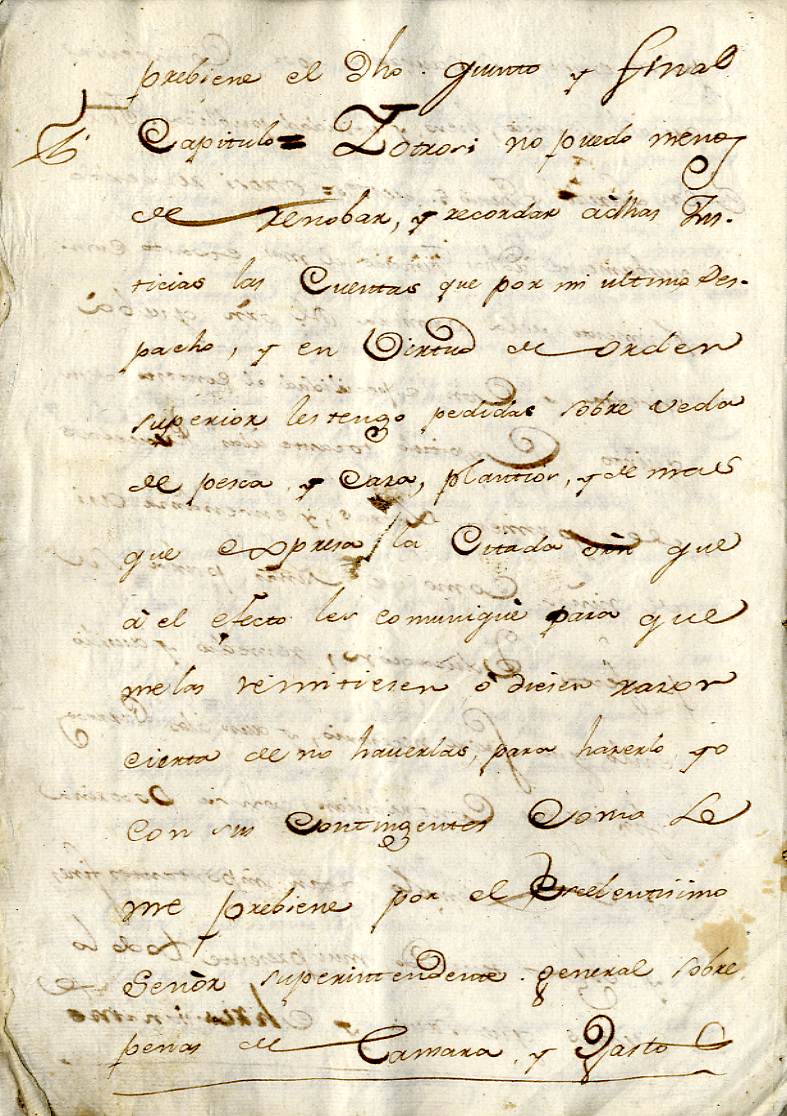 prebiene el dho. quinto y final
Capitulo = Y otrosi no puedo menos
de renobar, y recordar â dhas Jus-
ticias las Cuentas que por mi ultimo Des-
pacho, y en Virtud de orden
superior les tengo pedidas sobre veda
de pesca, y Caza, plantios, y de mas
que expresa la Citada orn que
â el efecto les comuniquè para que
me las remitiesen ô diesen razon
cierta de no haverlas, para hazerlo yo
con sus Contingentes Como se
me prebiene por el Excelentisimo
Señor superintendente general sobre
penas de Camara, y Gasto